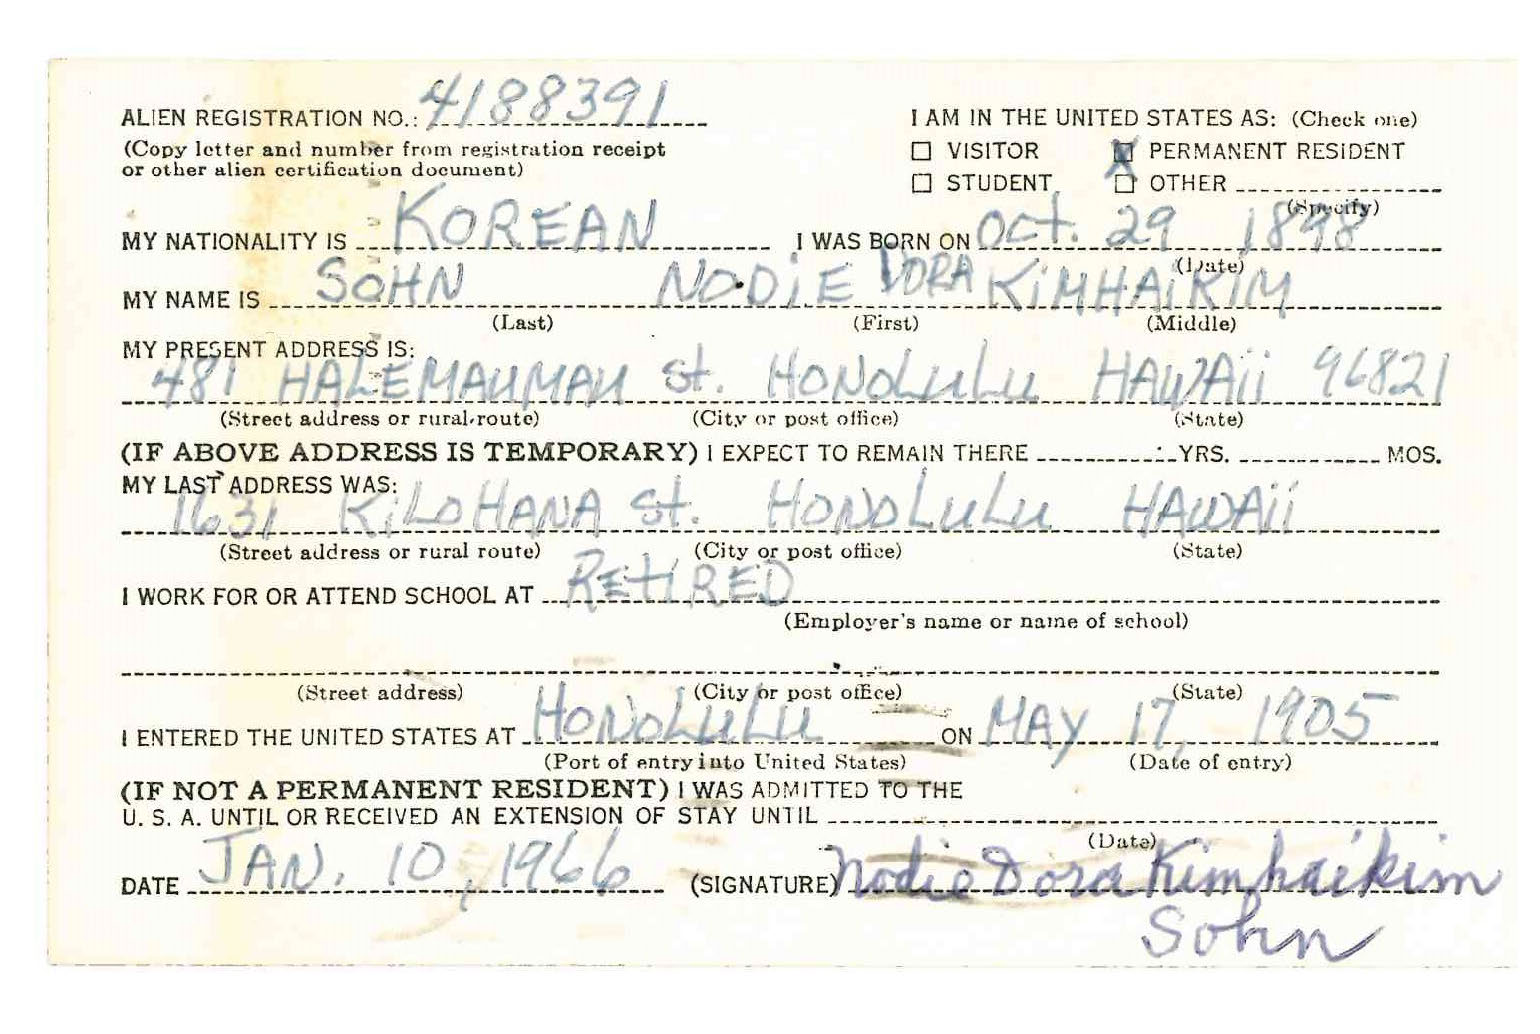 ALIEN REGISTRATION NO.: 4188391
(Copy letter and number from registration receipt
or other alien certification document)
I AM IN THE UNITED STATES AS: (Check one)
☐ VISITOR ☒ PERMANENT RESIDENT
☐ STUDENT ☐ OTHER
(Specify)
MY NATIONALITY IS KOREAN I WAS BORN ON Oct. 29 1898
(Date)
MY NAME IS SOHN NODIE DORA KIMHAIKIM
(Last) (First) (Middle)
MY PRESENT ADDRESS IS:
481 HALEMAUMAU St. HONOLULU HAWAII 96821
(Street address or rural route) (City or post office) (State)
(IF ABOVE ADDRESS IS TEMPORARY) I EXPECT TO REMAIN THERE YRS. MOS.
MY LAST ADDRESS WAS:
1631 KILOHANA St. HONOLULU HAWAII
(Street address or rural route) (City or post office) (State)
I WORK FOR OR ATTEND SCHOOL AT RETIRED
(Employer's name or name of school)
(Street address) (City or post office) (State)
I ENTERED THE UNITED STATES AT HONOLULU ON MAY 17, 1905
(Port of entry into United States) (Date of entry)
(IF NOT A PERMANENT RESIDENT) I WAS ADMITTED TO THE
U. S. A. UNTIL OR RECEIVED AN EXTENSION OF STAY UNTIL
(Date)
DATE JAN. 10, 1966 (SIGNATURE) Nodie Dora Kimhaikim
Sohn